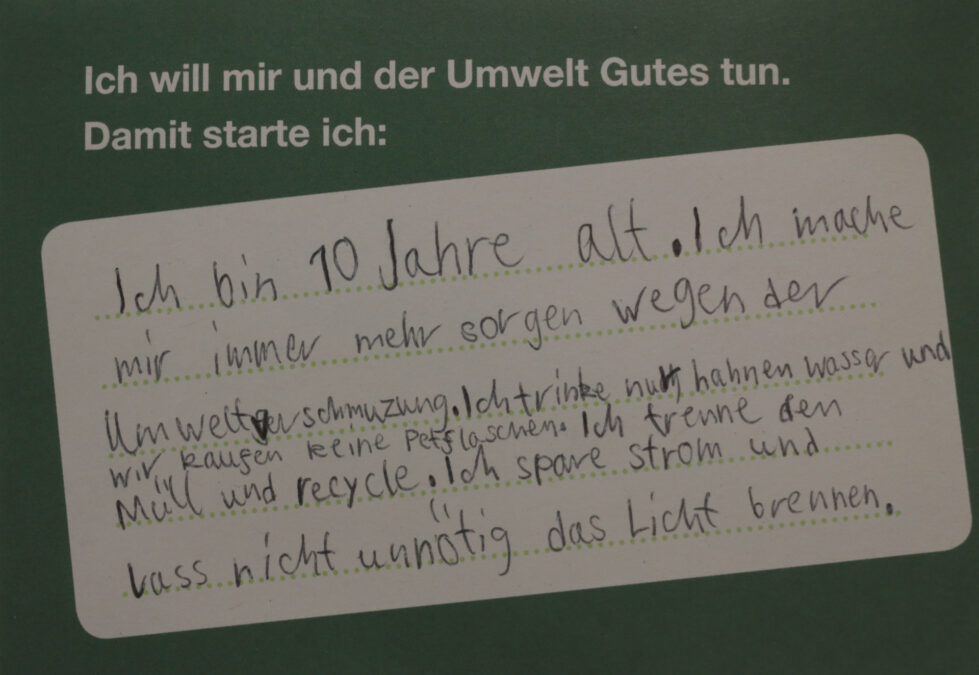 Ich will mir und der Umwelt Gutes tun.
Damit starte ich:
Ich bin 10 Jahre alt. Ich mache
mir immer mehr sorgen wegen der
Umweltverschmuzung. Ich trinke nur hahnen wasser und
wir kaufen keine Petflaschen. Ich trenne den
Müll und recycle. Ich spare strom und
lass nicht unnötig das Licht brennen.